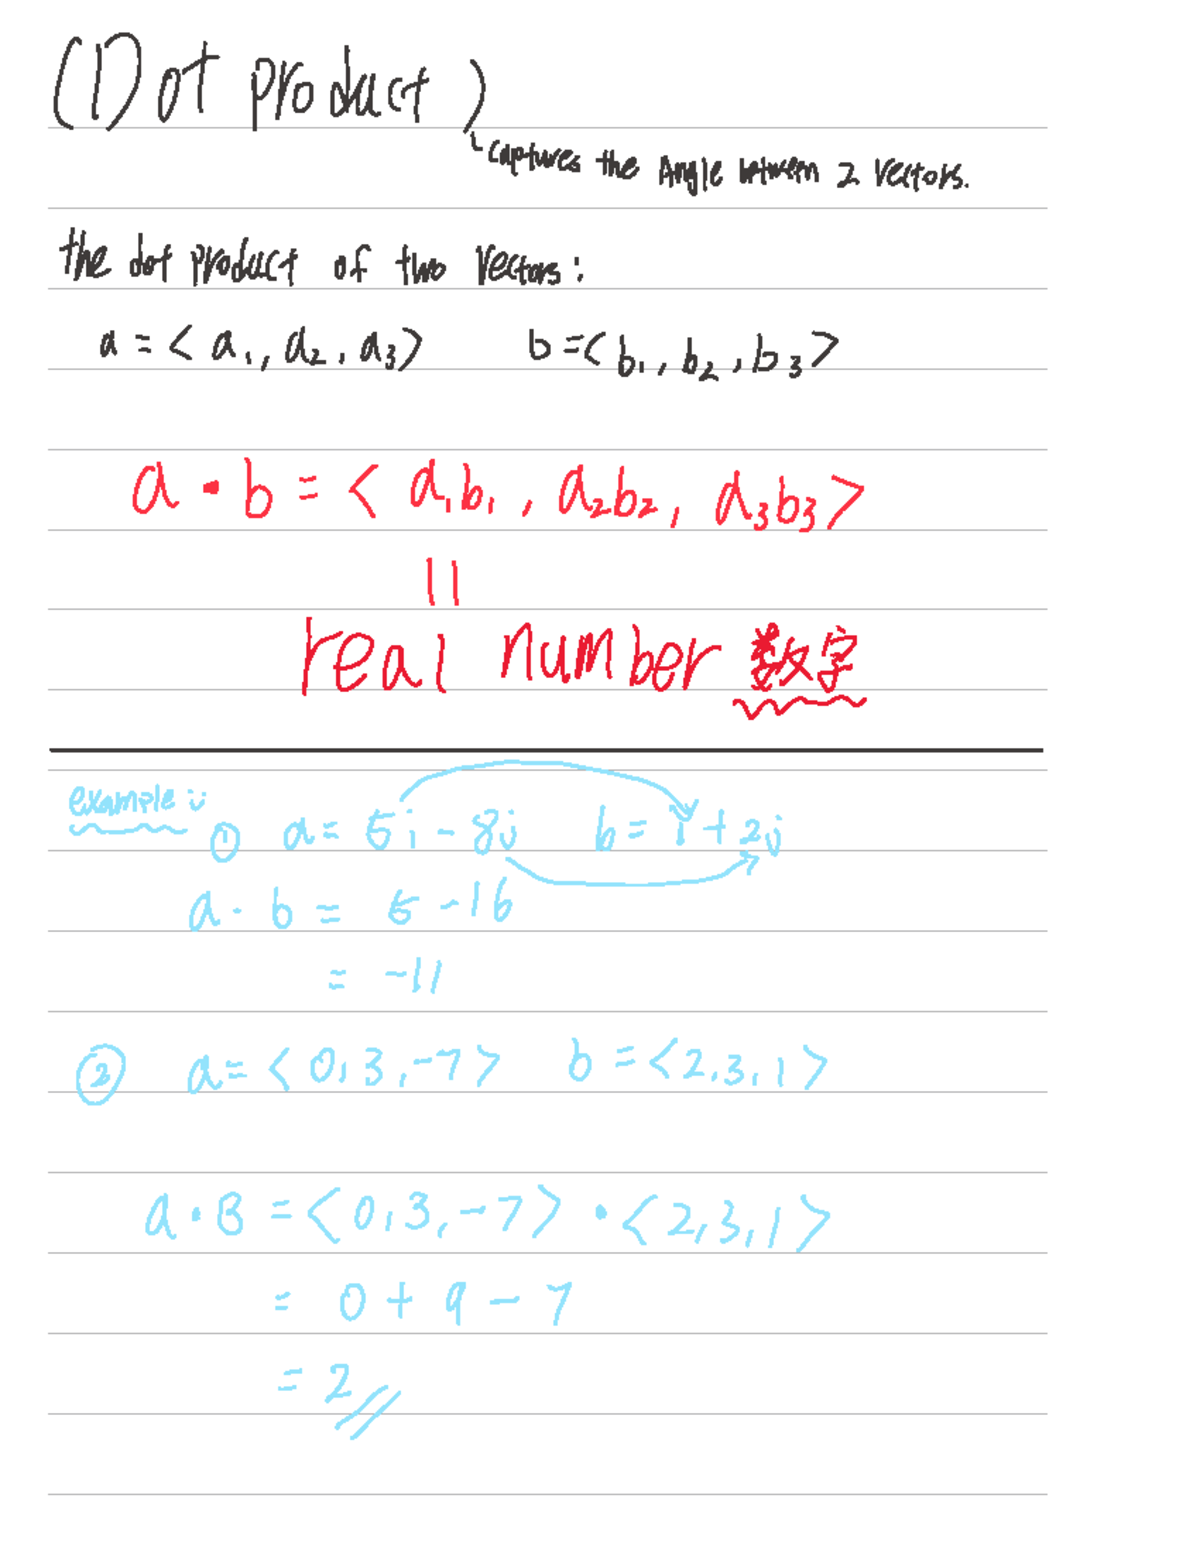 (Dot product)
captures the Angle between 2 vectors.
the dot product of two vectors:
a = < a₁, a₂, a₃> b = <b₁, b₂, b₃>
a · b = < a₁b₁, a₂b₂, a₃b₃>
||
real number 数字
example:
① a = 5i - 8j b = i + 2j
a · b = 5 - 16
= -11
② a = < 0, 3, -7 > b = <2, 3, 1 >
a · B = <0, 3, -7> · <2, 3, 1>
= 0 + 9 - 7
= 2//